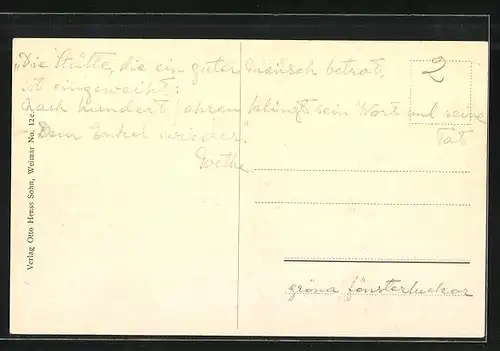 „Die Stätte, die ein guter Mensch betrat,
ist eingeweiht:
nach hundert Jahren klingt sein Wort und seine
Tat
Dem Enkel wieder."
Goethe
2
gröna fönsterluckor
Verlag Otto Henss Sohn, Weimar No. 12e.